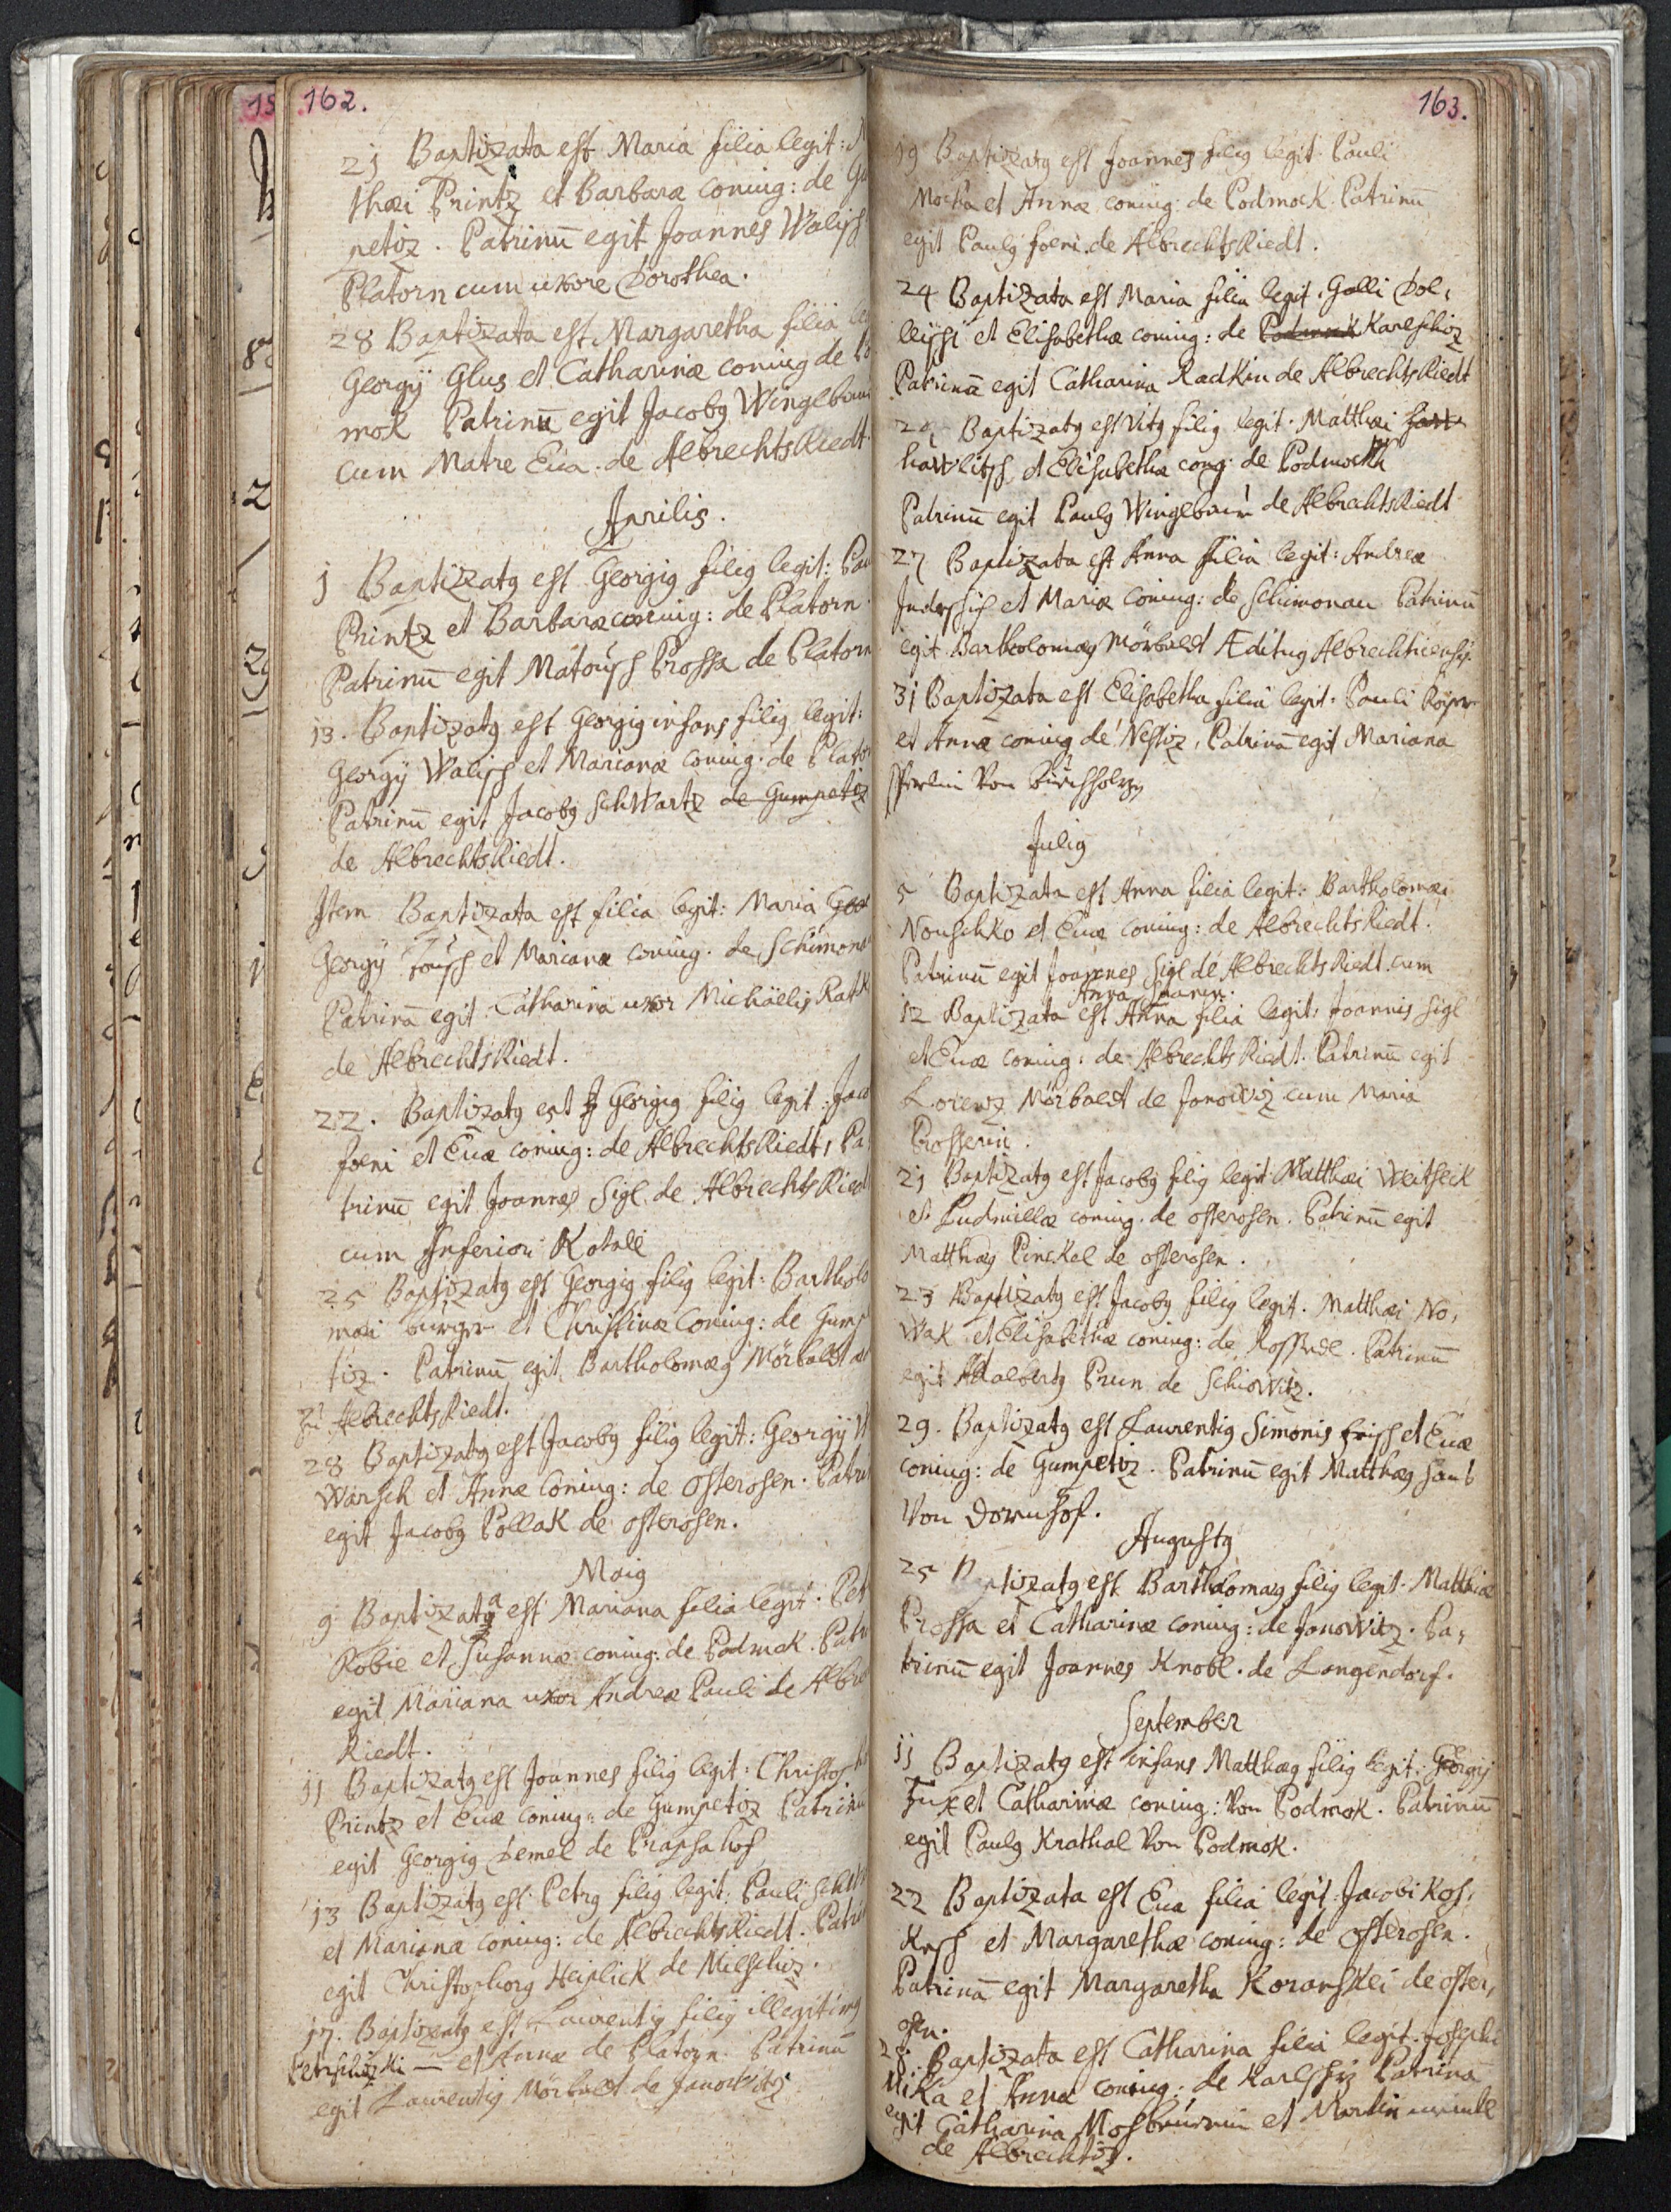 162.
21 Baptizata est Maria filia legit:
thæi Printz et Barbaræ coniug: de Gu
petiz. Patrinū egit Joannes Waliss
Platorn cum uxore Dorothea.
28 Baptizata est Margaretha filia le
Georgÿ Glus et Catharinæ coniug de Po
mok Patrinū egit Jacobg Winglbau
cum Matre Eua. de AlbrechtsRiedt.
Aprilis.
j Baptizatg est Georgig filig legit: Pau
Printz et Barbaræ coniug: de Platorn.
Patrinū egit Matouss Prossa de Platorn
j3. Baptizatg est Georgig infans filig legit:
Georgÿ Waliss et Marianæ coniug. de Plator
Patrinū egit Jacobg Schwartz de Gumpetiz
de AlbrechtsRiedt.
Item Baptizata est filia legit: Maria Geor
Georgÿ Touss et Marianæ coniug. de Schimona
Patrinā egit Catharina uxor Michäelis Ratk
de AlbrechtsRiedt.
22. Baptizatg est J Georgig filig legit: Jaco
foeni et Euæ coniug: de AlbrechtsRiedt, Pa
trinū egit Joannes Sigl de AlbrechtsRiedt
cum Inferiori Kotall
25 Baptizatg est Georgig filig legit: Bartholo
mæi burger et Christinæ coniug: de Gump
tiz. Patrinū egit Bartholomæg Mörbaldt
zu AlbrechtsRiedt.
28 Baptizatg est Jacobg filig legit: Georgÿ
Warsch et Annæ coniug: de Osterosen. Patri
egit Jacobg Pollak de osterosen.
Maig
9 Baptizata est Mariana filia legit. Pet
Robie et Susannæ coniug: de Podmok. Patri
egit Mariana uxor Andreæ Pauli de Albre
Riedt.
jj Baptizatg est Joannes filig legit: Christoph
Printz et Euæ coniug: de Gumpetiz Patrinū
egit Georgig Demel de Prapsahof
j3 Baptizatg est Petrg filig legit: Pauli Sch
et Marianæ coniug: de AlbrechtsRiedt. Patri
egit Christophorg Heiplick de Milschiz.
j7. Baptizatg est Laurentig filig illegitimg
— et Annæ de Platorn Patrinū
egit Laurentig Mörbaldt de Janowitz
163.
19 Baptizatg est Joannes filig legit. Pauli
Mocka et Annæ coniug: de Podmock. Patrinū
egit Paulg foeni de AlbrechtsRiedt.
24 Baptizata est Maria filia legit. Galli Dol,
leyssi et Elisabethæ coniug: de Podmok Karlschiz
Patrinā egit Catharina Radkin de AlbrechtsRiedt
Baptizatg est Vitg filig legit. Matthæi
hawlitss et Elisabethæ cong: de Podmockh
Patrinū egit Paulg Winglbair de AlbrechtsRiedt
27 Baptizata est Anna filia legit: Andreæ
et Mariæ coniug: de Schimonau Patrinū
egit Bartholomæg Mörbaldt Æditug Albrechticensis.
3j Baptizata est Elisabetha filia legit. Pauli
et Annæ coniug de Nestiz, Patrinā egit Mariana
Von
Julig
5 Baptizata est Anna filia legit: Bartholomæi
Nouschko et Euæ coniug: de AlbrechtsRiedt.
Patrinū egit Joannes Sigl de AlbrechtsRiedt cum
Anna
12 Baptizata est Anna filia legit: Joannis Sigl
et Euæ coniug: de AlbrechtsRiedt. Patrinū egit
Lorenz Mörbaldt de Janowiz cum Maria
Prosserin.
2j Baptizatg est Jacobg filig legit Matthæi Weitseik
et Ludmillæ coniug. de osterosen. Patrinū egit
Matthæg Pinckel de osterosen.
23 Baptizatg est Jacobg filig legit. Matthæi No,
wak et Elisabethæ coniug: de Rossedl. Patrinū
egit Adalbertg Prun de Schiowitz.
29. Baptizatg est Laurentig Simonis friss et Euæ
coniug: de Gumpetiz. Patrinū egit Matthæg
Von Dornhof.
Augustg
25 Baptizatg est Bartholomæg filig legit. Matthiæ
Prossa et Catharinæ coniug: de Janowitz. Pa,
trinū egit Joannes Knobl. de Langendorf.
September
jj Baptizatg est infans Matthæg filig legit: Georgij
Fux et Catharinæ coniug: Von Podmok. Patrinū
egit Paulg Krathal Von Podmok.
22 Baptizata est Eua filia legit: Jacobi Kos,
et Margarethæ coniug: de Osterosen.
Patrinā egit Margaretha Koranskei de oster,
osen.
28. Baptizata est Catharina filia legit. Josephi
Mika et Annæ coniug: de Karlschiz Patrinā
egit Catharina Mosbäurin et Martin
de Albrechtiz.